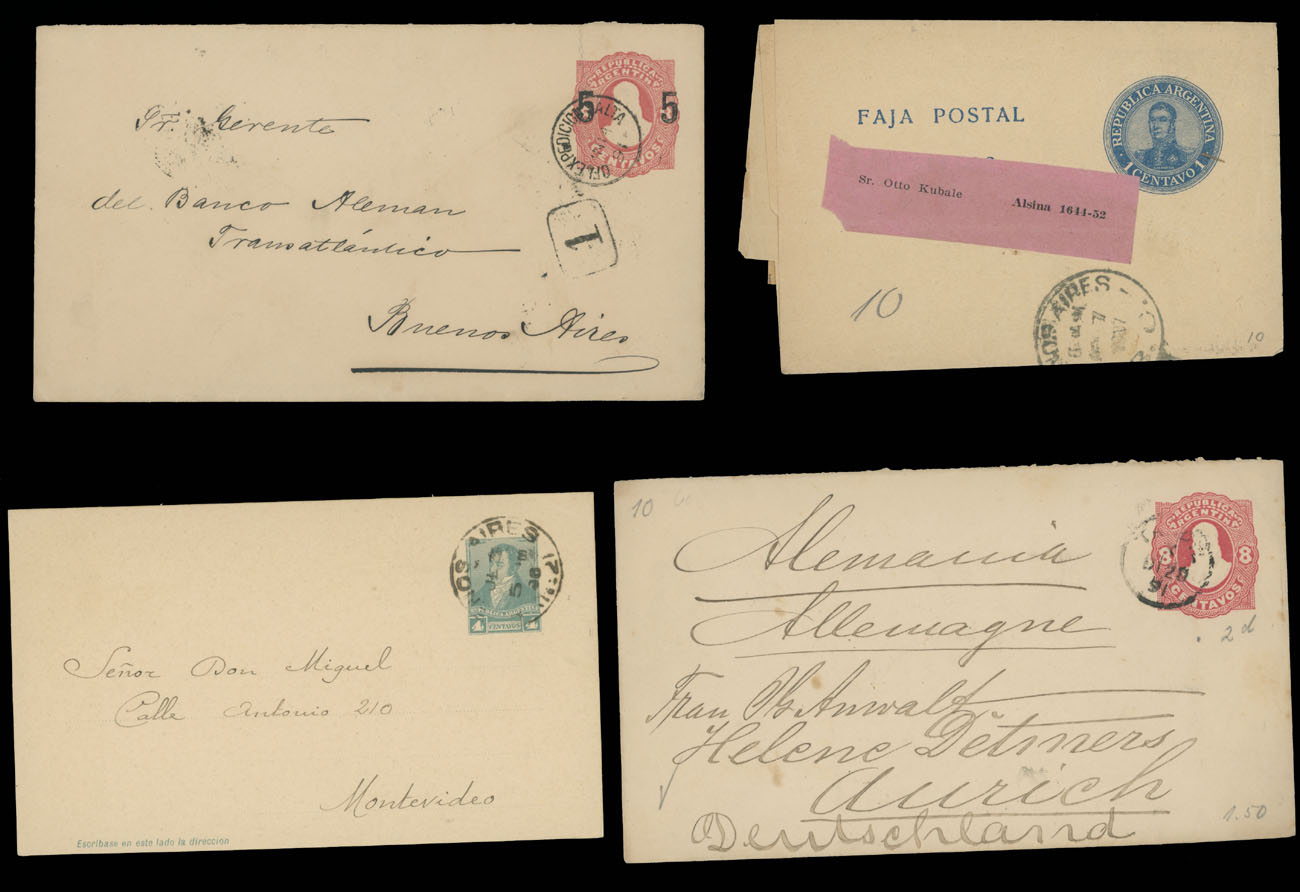 Sr. Gerente
del Banco Aleman
Transatlántico
Buenos Aires
REPUBLICA
ARGENTINA
5 5
CENTAVOS
OFI. EXPEDICION ALTA
1
FAJA POSTAL
REPUBLICA ARGENTINA
1 CENTAVO 1
Sr. Otto Kubale
Alsina 1644-52
10
NOS AIRES
7
10
NOS AIRES
5
REPUBLICA ARGENTINA
4 CENTAVOS
Señor Don Miguel
Calle Antonio 210
Montevideo
Escribase en este lado la direccion
10
REPUBLICA
ARGENTINA
8 8
CENTAVOS
28
91
2 d
Alemania
Allemagne
Frau Anwalt
Helene Detmers
Aurich
Deutschland
1.50